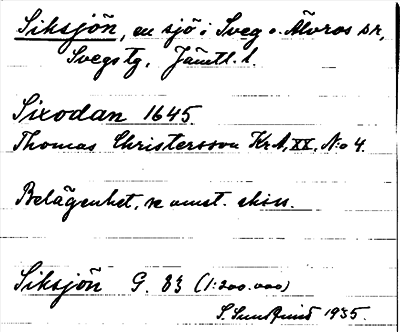 Siksjön, en sjö i Sveg o. Älvros sr,
Svegs tg, Jämtl. l.
Sixodan 1645
Thomas Christersson Kr A, XX, N:o 4.
Belägenhet, se omst. skiss.
Siksjön G. 83 (1:200.000)
S. Sundquist 1935.